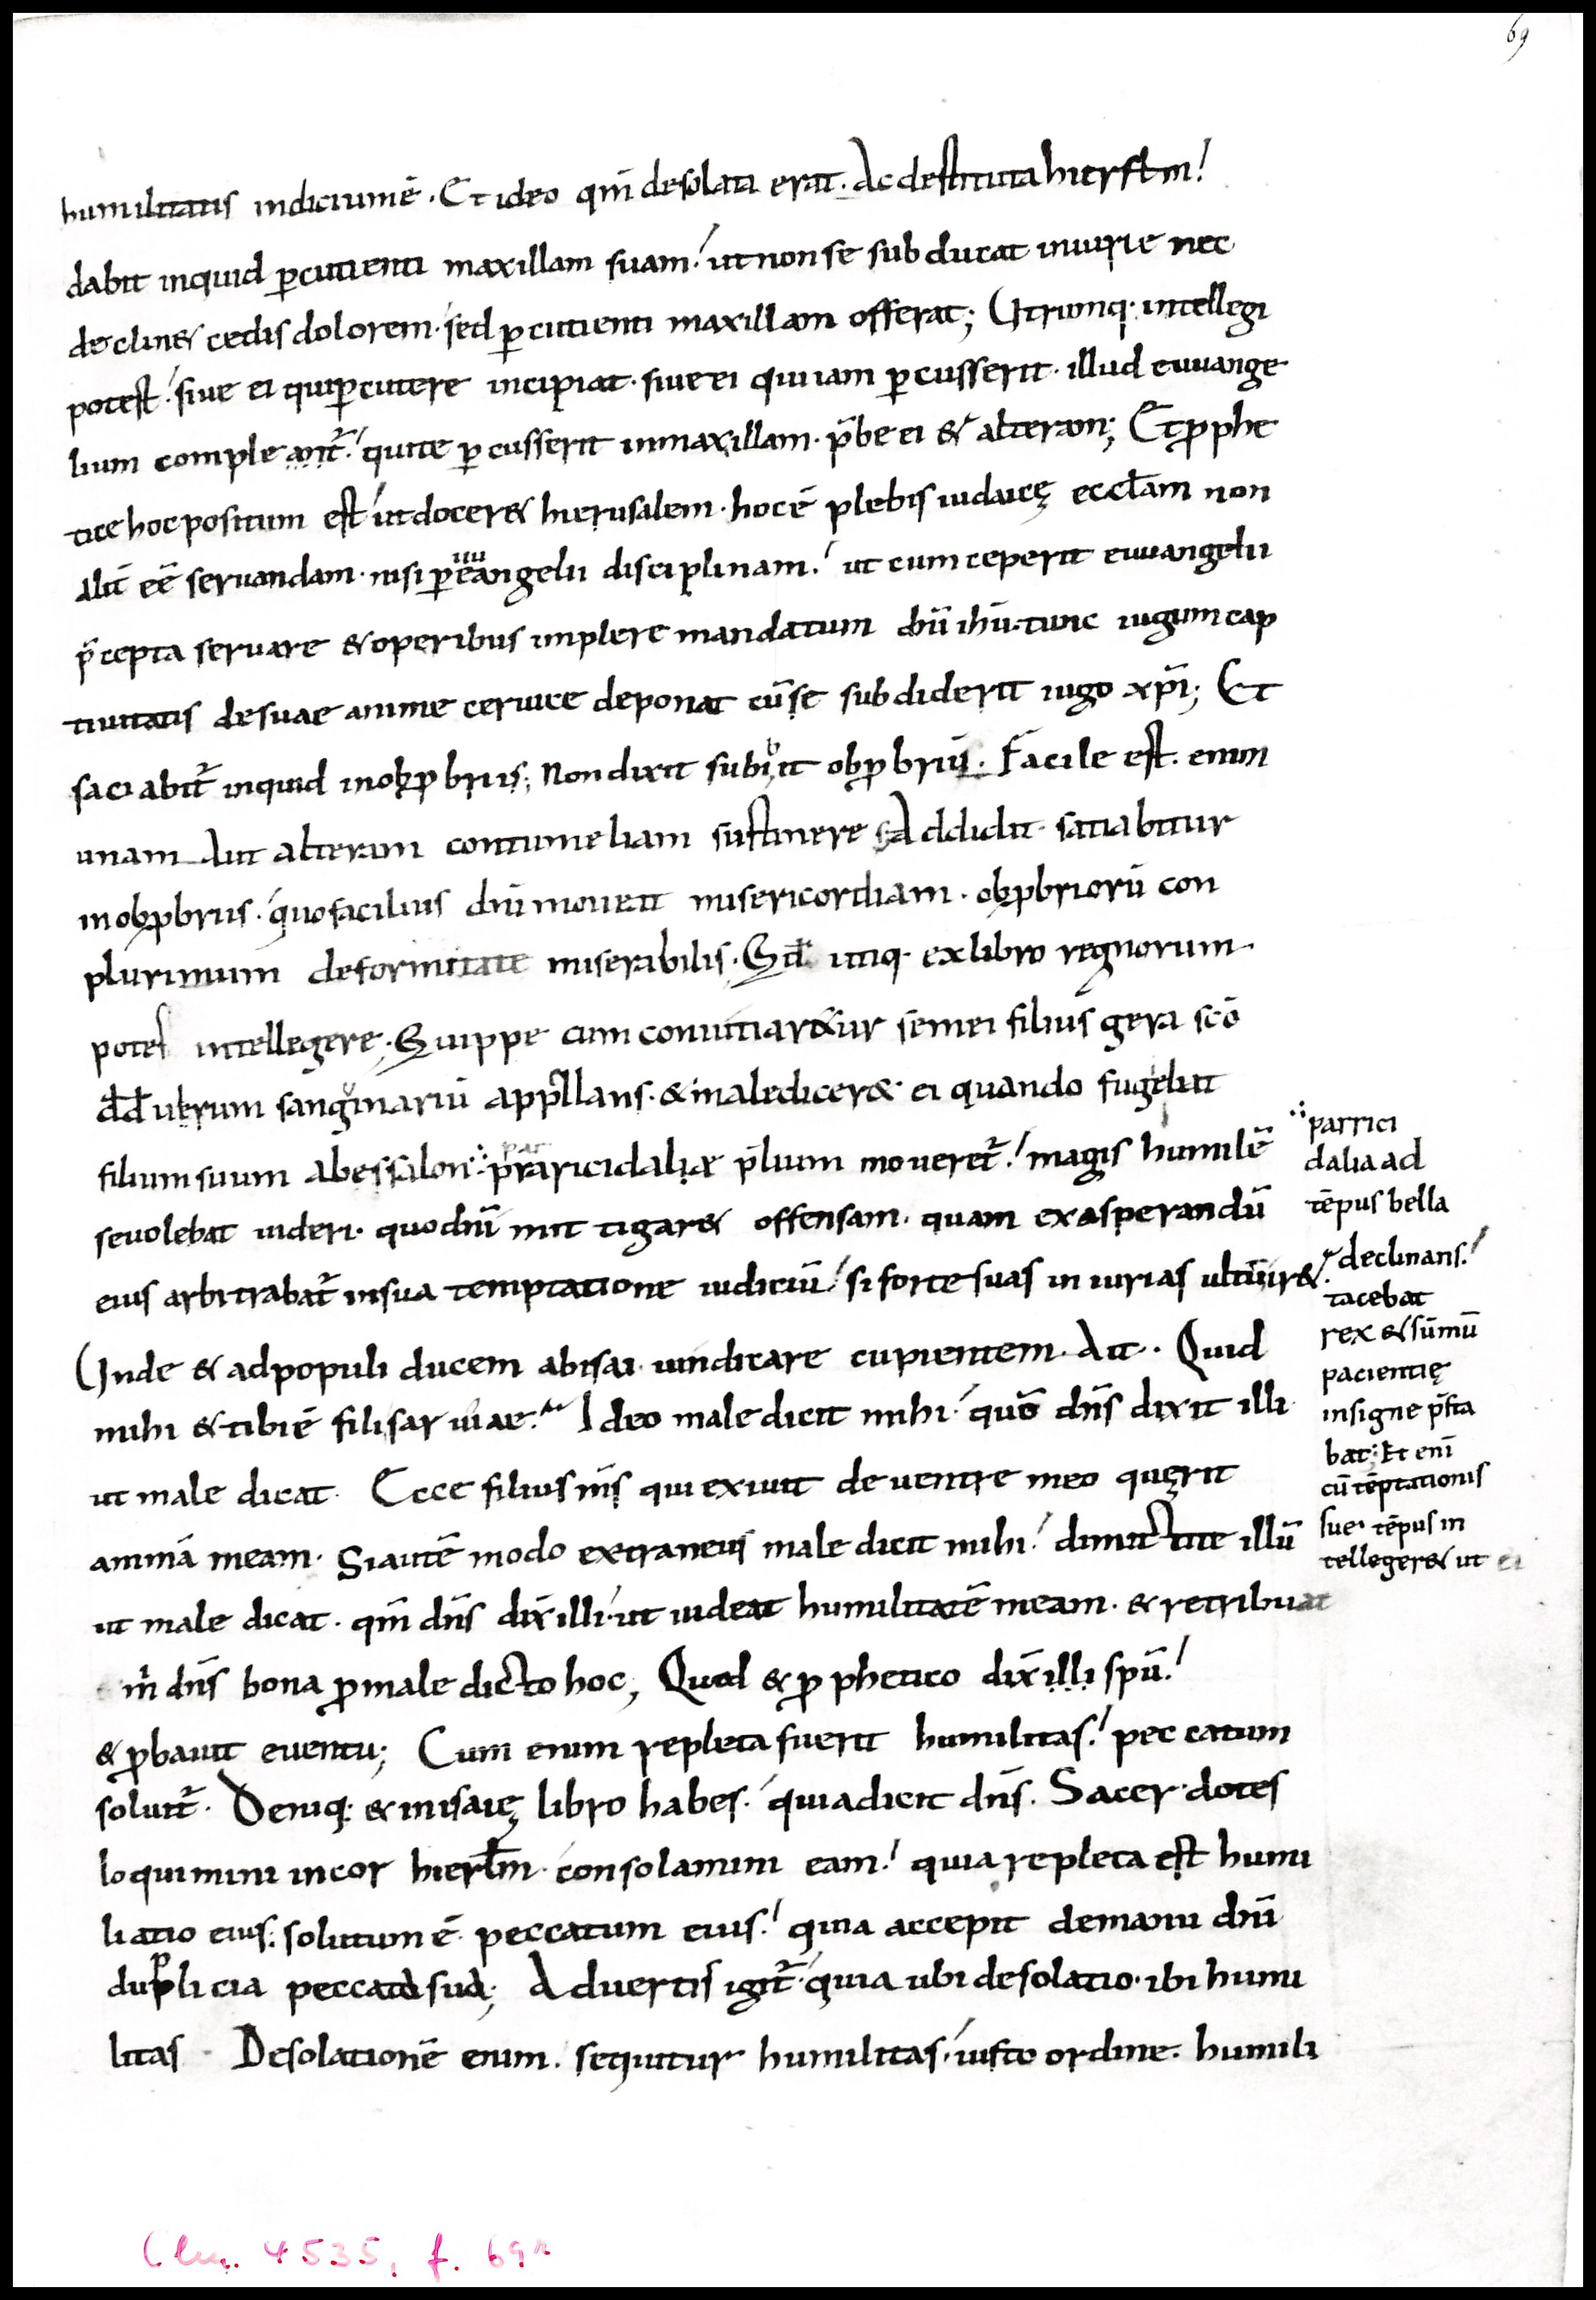 69
humilitatis indiciumē. Et ideo qm̄ desolata erat. Ac destituta hierslm̄!
dabit inquid ꝑcutienti maxillam suam! ut non se subducat iniurie nec
declin& cedis dolorem. sed ꝑcutienti maxillam offerat; Utrumq· intellegi
potest! siue ei quiꝑcutere incipiat. siue ei qui iam ꝑcusserit. illud euuange
lium compleant̄! quite ꝑcusserit inmaxillam. p̄be ei & alteram; Etꝓphe
tice hoc positum est! ut docer& hierusalem. hocē plebis iudaicę eccl̄am non
alit̄ eē seruandam. nisi ꝑeuuangelii disciplinam! ut cum ceperit euuangelii
p̄cepta seruare & operibus implere mandatum dn̄i ihū. tunc iugum cap
tiuitatis desuae anime ceruice deponat cūse subdiderit iugo xp̄i; Et
saciabit̄ inquid inobꝓbriis; Non dixit subiit obꝓbriū. Facile est. enim
unam Aut alteram contumeliam sustinere sAddidit. satiabitur
inobꝓbriis. quo facilius dn̄i moueat misericordiam. obꝓbriorū con
plurimum deformitate miserabilis. Qd̄ utiq· exlibro regnorum
potes intellegere. Quippe cum conuitiar&ur semei filius gera sc̄o
dd̄ uirum sanguinariū appellans. & maledicer& ei quando fugebat
filium suum abessalon ∴ parricidaliae p̄lium moueret̄! magis humilē
seuolebat uideri. quo dn̄i mitigar& offensam. quam exasperandū
eius arbitrabat̄ insua temptatione iudiciū! si forte suas iniurias ultum ir&.
Unde & adpopuli ducem abisai uindicare cupientem. Ait. Quid
mihi & tibi ē fili saruiae. Ideo maledicit mihi! quō dn̄s dixit illi
ut maledicat. Ecce filius ms̄ qui exiuit de uentre meo quęrit
animā meam. Siautē modo extraneus maledicit mihi! dimittite illū
ut maledicat. qm̄ dn̄s dix̄ illi. ut uideat humilitatē meam. & retribuat
m̄ dn̄s bona ꝓmaledicto hoc; Quod & ꝓphetico dix̄ illi spū!
& ꝓbauit euentu; Cum enim repleta fuerit humilitas! peccatum
soluit̄. Deniq; & inisaię libro habes. quia dicit dn̄s. Sacerdotes
loquimini incor hierl̄m. consolamini eam! quia repleta est humi
liatio eius. solutum ē peccatum eius! quia accepit demanu dn̄i
duplicia peccata sua; Aduertis igit̄. quia ubi desolatio. ibi humi
litas Desolationē enim. sequitur humilitas, iusto ordine. humili
∴ parrici
dalia ad
tēpus bella
declinans!
tacebat
rex & sūmū
pacientię
insigne p̄sta
bat; Et enī
cū tēptationis
sue tēpus in
telleger& ut ei
Clm. 4535, f. 69r